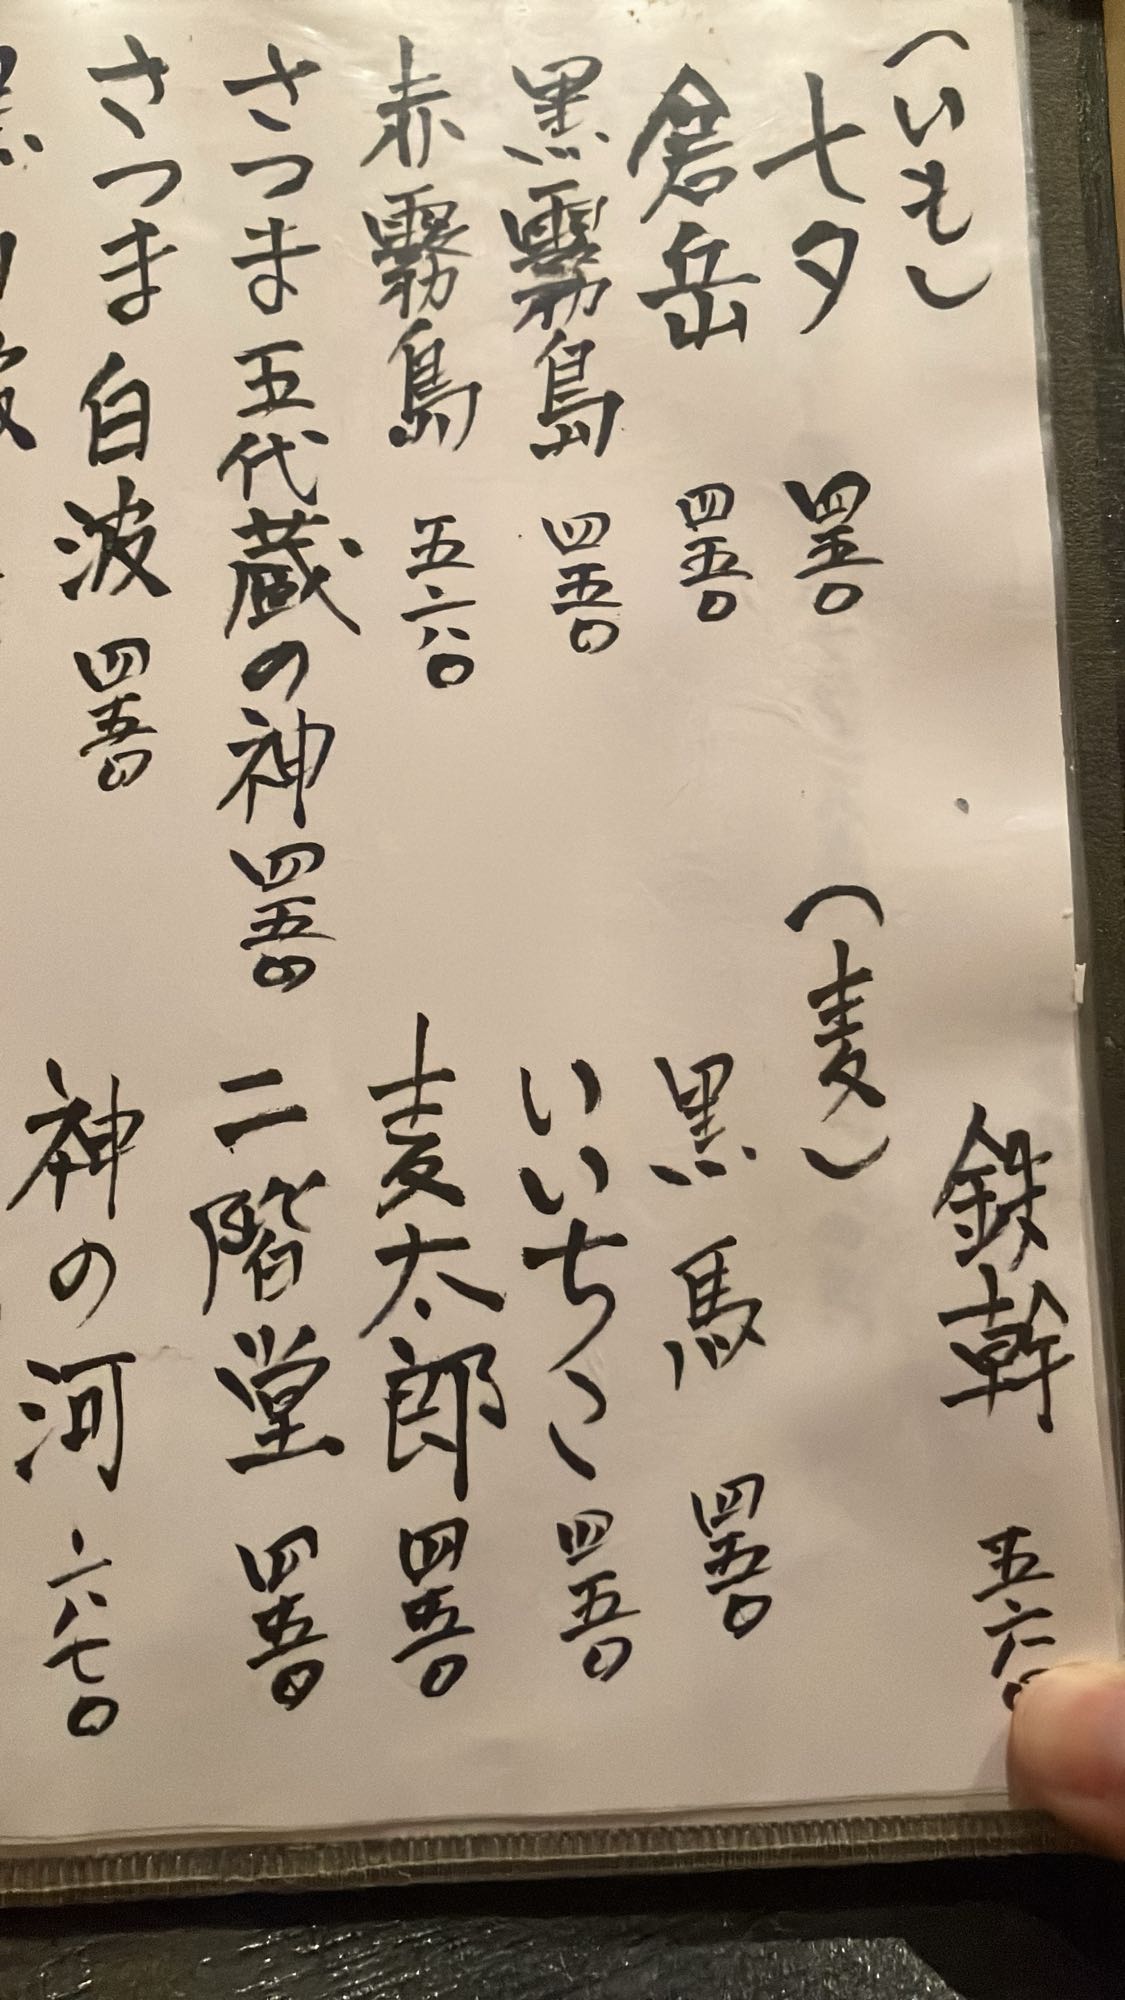 (いも)
七夕 四五〇
倉岳 四五〇
黒霧島 四五〇
赤霧島 五六〇
さつま五代蔵の神 四五〇
さつま白波 四五〇
鉄幹 五六〇
(麦)
黒馬 四五〇
いいちこ 四五〇
麦太郎 四五〇
二階堂 四五〇
神の河 六七〇